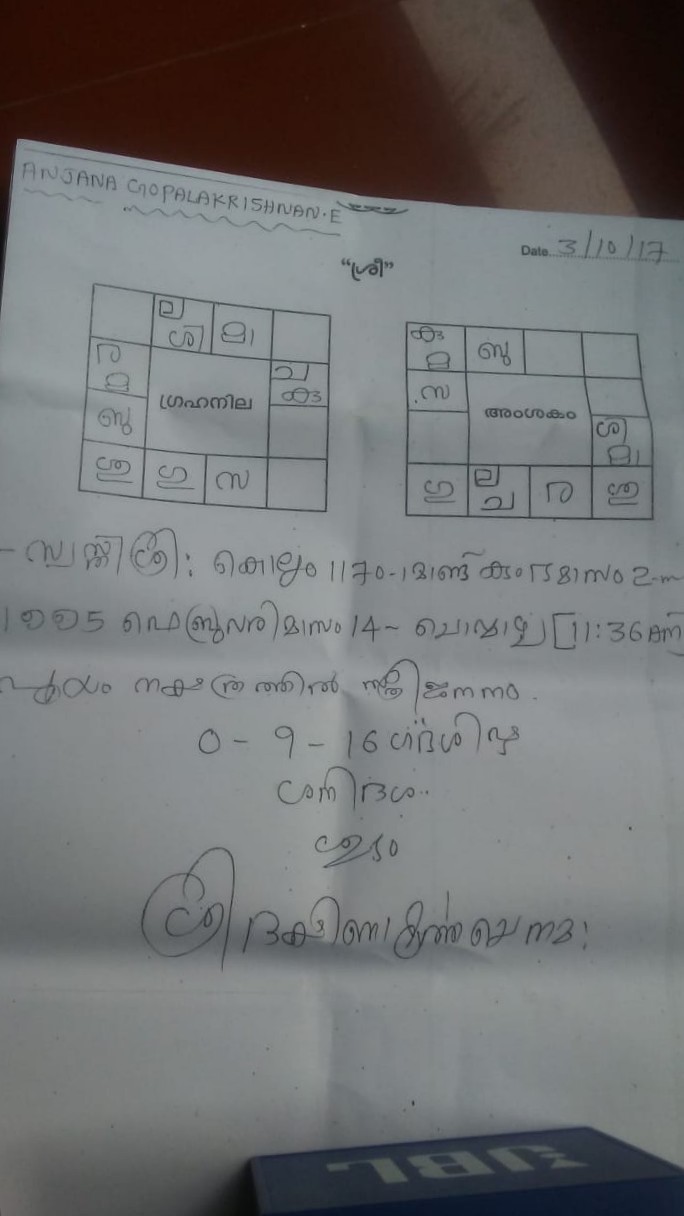 ANJANA GOPALAKRISHNAN.E
Date 3/10/17
"ശ്രീ"
ല
ശി മാ
ര
മ
ച
കു
ഗ്രഹനില
ബു
ഗു സ
കു
മ ബു
സ
അംശകം
ശി
മാ
ഗു ല
ച ര
സ്വസ്തിശ്രീ: കൊല്ലം 1170-ാമാണ്ട് കുംഭമാസം 2-
1995 ഫെബ്രുവരിമാസം 14- ചൊവ്വാഴ്ച [11:36AM]
പൂയം നക്ഷത്രത്തിൽ സ്ത്രീജനനം.
0 - 9 - 16 ഗർഭശിഷ്ട
ശനിദശ..
ശുഭം
ശ്രീ ദക്ഷിണാമൂർത്തയെ നമ:
JBL